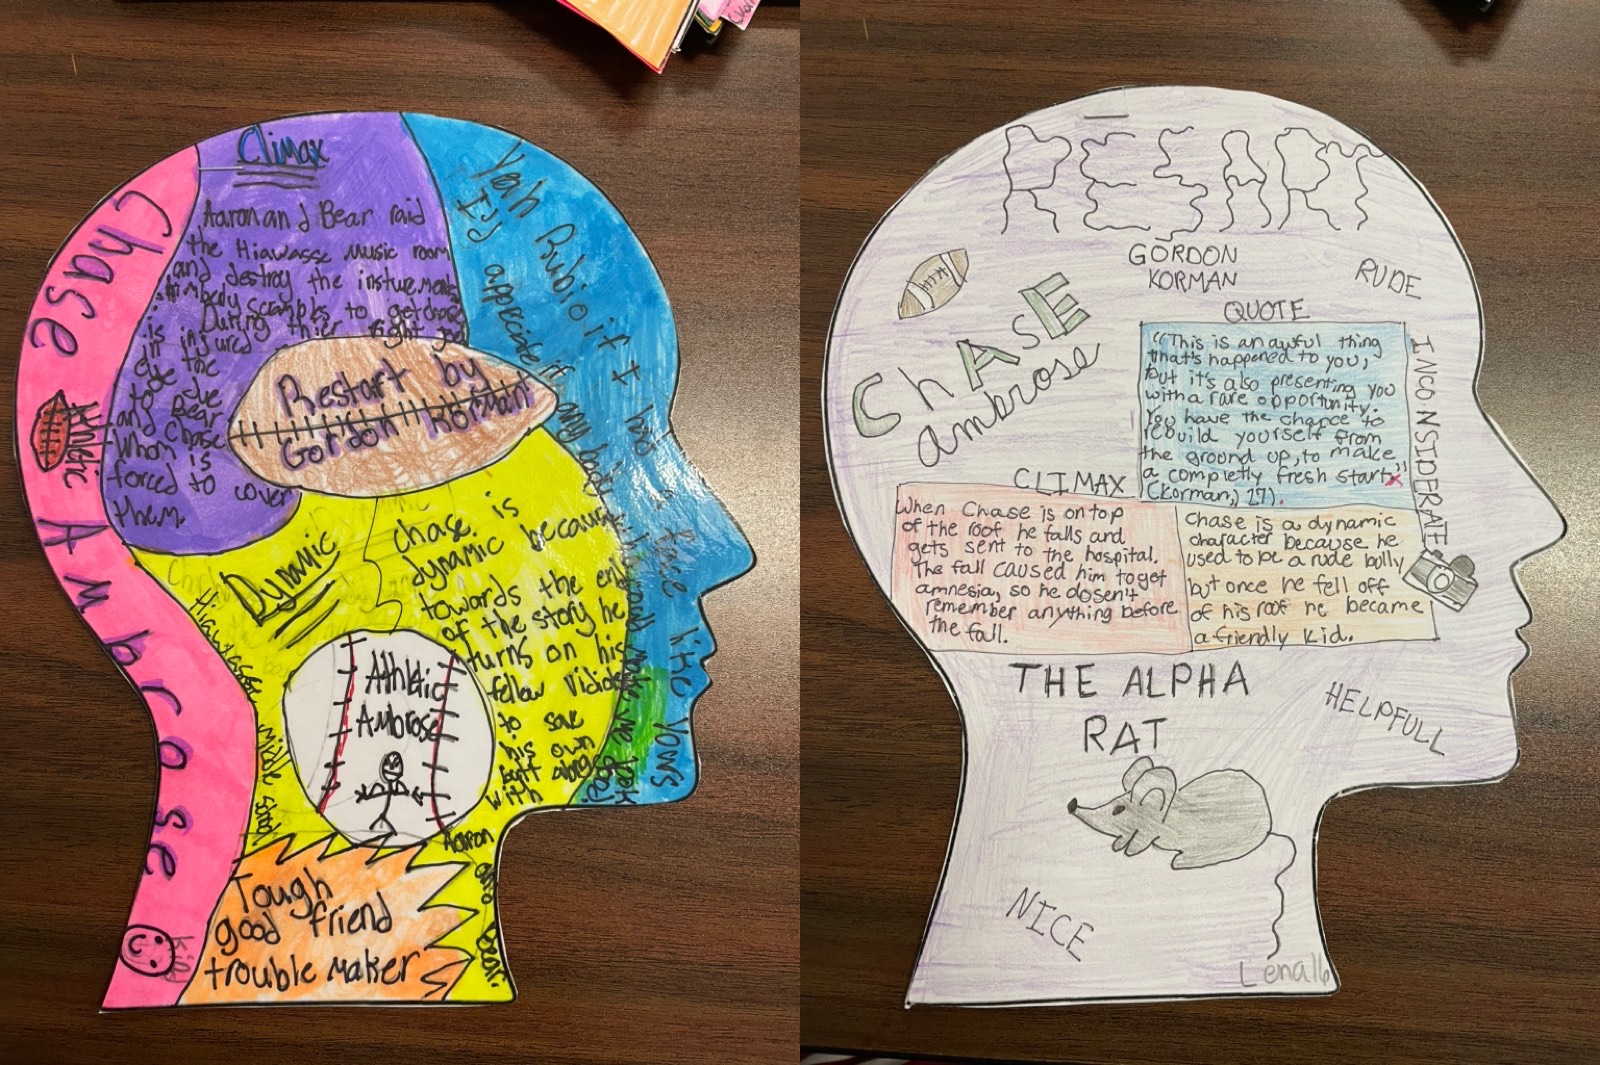 Climax
Aaron and Bear raid
the Hiawasse music room
and destroy the insturements
body scrambles to get
During thier fight
is injured
in the
due
to
and Bear
Whom Chase
is
forced to cover
them.
Chase Ambrose
Athletic
Restart by
Gordon Korman
Yeah Rubio if I had
a face like yours
I'd appreciate if anybody
could make me look
good!
Dynamic
Chase is
dynamic because
towards the end
of the story he
turns on his
fellow
to save
his own
butt along
with
Aaron
and Bear.
Hiawassee Middle School
Athletic
Ambrose
Tough
good friend
trouble maker
RESART
GORDON
KORMAN
RUDE
CHASE
ambrose
QUOTE
"This is an awful thing
that's happened to you,
but it's also presenting you
with a rare opportunity.
You have the chance to
rebuild yourself from
the ground up, to make
a completly fresh start"
(Korman,) 17).
INCONSIDERATE
CLIMAX
When Chase is on top
of the roof he falls and
gets sent to the hospital.
The fall caused him to get
amnesia, so he dosen't
remember anything before
the fall.
Chase is a dynamic
character because he
used to be a rude bully
but once he fell off
of his roof he became
a friendly kid.
THE ALPHA
RAT
HELPFULL
NICE